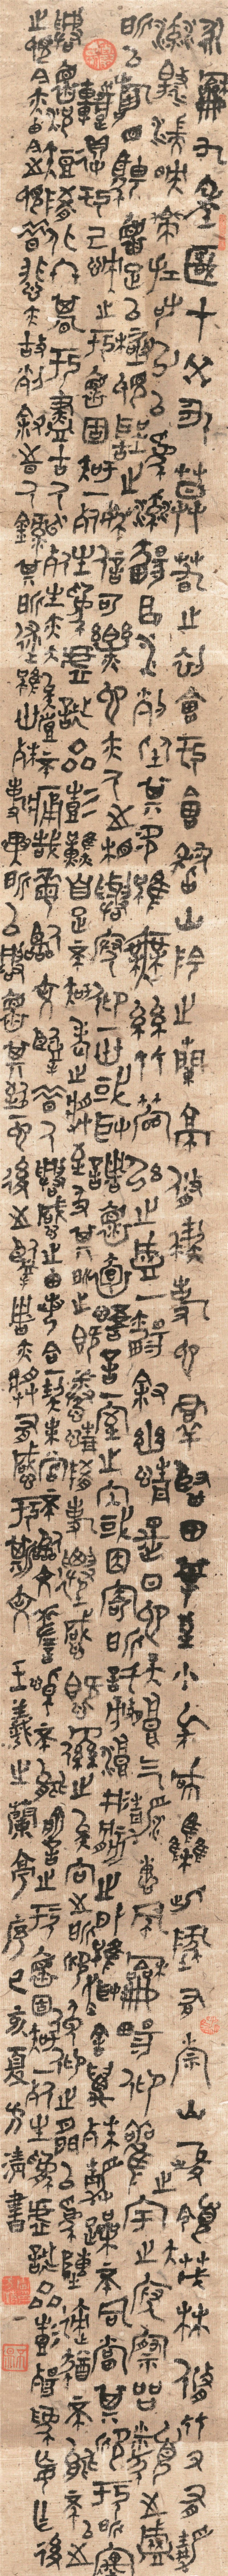 永和九年歲在癸丑暮春之初會于會稽山陰之蘭亭修禊事也群賢畢至少長咸集此地有崇山峻領茂林修竹又有清
流激湍映帶左右引以為流觴曲水列坐其次雖無絲竹管弦之盛一觴一詠亦足以暢敘幽情是日也天朗氣清惠風和暢仰觀宇宙之大俯察品類之盛
所以遊目騁懷足以極視聽之娛信可樂也夫人之相與俯仰一世或取諸懷抱悟言一室之內或因寄所託放浪形骸之外雖趣舍萬殊靜躁不同當其欣於所遇
暫得於己快然自足不知老之將至及其所之既倦情隨事遷感慨係之矣向之所欣俯仰之間以為陳跡猶不能不以之
興懷況修短隨化終期於盡古人云死生亦大矣豈不痛哉每攬昔人興感之由若合一契未嘗不臨文嗟悼不能喻之於懷固知一死生為虛誕齊彭殤為妄作後
之視今亦由今之視昔悲夫故列敘時人錄其所述雖世殊事異所以興懷其致一也後之攬者亦將有感於斯文 王羲之蘭亭序己亥夏方清書